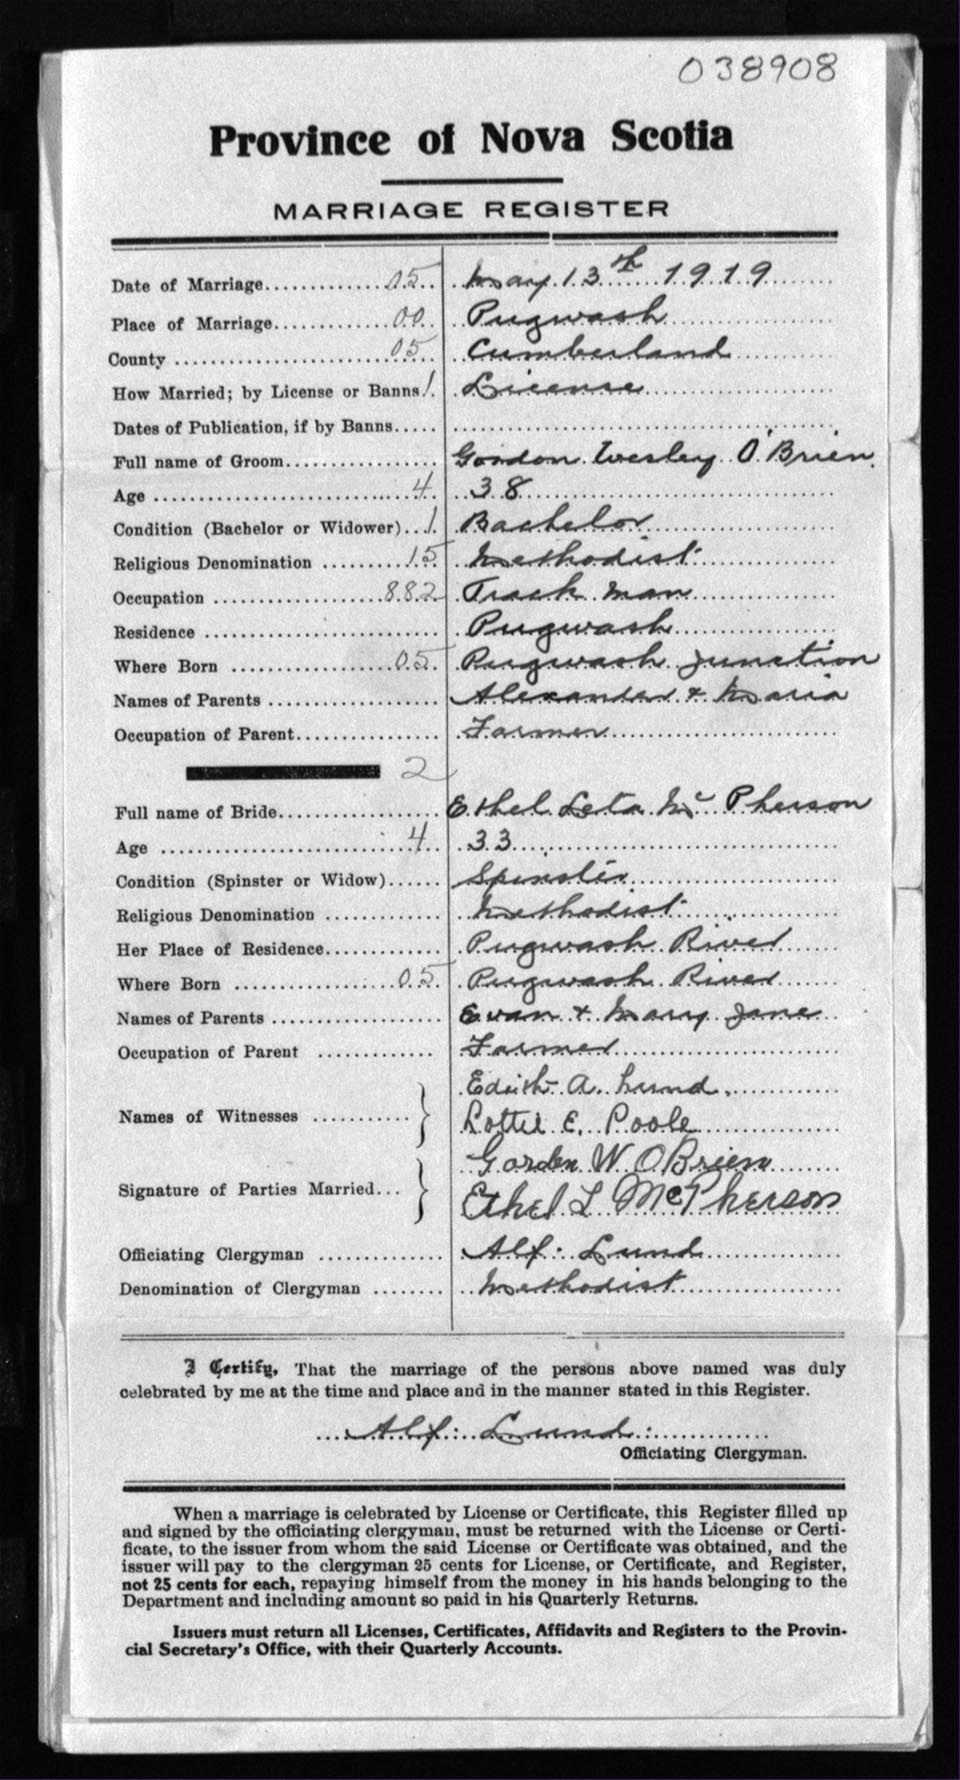 038908
Province of Nova Scotia
MARRIAGE REGISTER
Date of Marriage.............05.. May 13th 1919
Place of Marriage............00.. Pugwash
County .....................05.... Cumberland
How Married; by License or Banns 1. License
Dates of Publication, if by Banns.....
Full name of Groom................. Gordon Wesley O'Brien
Age .........................4.. 38
Condition (Bachelor or Widower)...1. Bachelor
Religious Denomination .........15. Methodist
Occupation ...................882. Track man
Residence ........................... Pugwash
Where Born ................05. Pugwash Junction
Names of Parents ................... Alexander & Maria
Occupation of Parent................ Farmer
2
Full name of Bride.................. Ethel Leta McPherson
Age ..........................4.. 33
Condition (Spinster or Widow)...... Spinster
Religious Denomination ............. Methodist
Her Place of Residence............. Pugwash River
Where Born .................05. Pugwash River
Names of Parents ................... Evan & Mary Jane
Occupation of Parent ............. Farmer
Names of Witnesses ........... } Edith A. Lund
Lottie E. Poole
Signature of Parties Married... } Gorden W OBrien
Ethel L McPherson
Officiating Clergyman .............. Alf: Lund
Denomination of Clergyman ........ Methodist
I Certify, That the marriage of the persons above named was duly
celebrated by me at the time and place and in the manner stated in this Register.
Alf: Lund:
Officiating Clergyman.
When a marriage is celebrated by License or Certificate, this Register filled up
and signed by the officiating clergyman, must be returned with the License or Certi-
ficate, to the issuer from whom the said License or Certificate was obtained, and the
issuer will pay to the clergyman 25 cents for License, or Certificate, and Register,
not 25 cents for each, repaying himself from the money in his hands belonging to the
Department and including amount so paid in his Quarterly Returns.
Issuers must return all Licenses, Certificates, Affidavits and Registers to the Provin-
cial Secretary's Office, with their Quarterly Accounts.